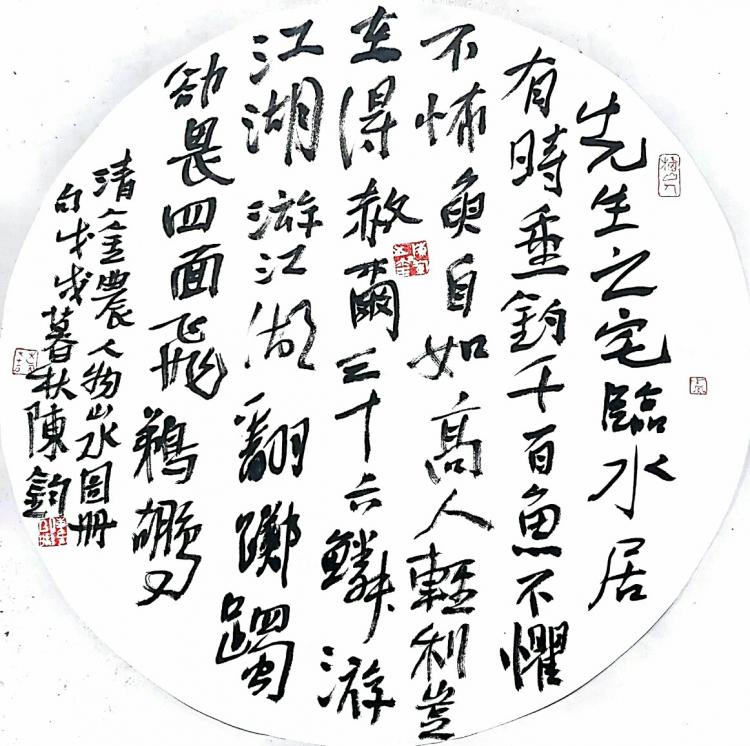 先生之宅臨水居
有時垂釣千百魚不懼
不怖魚自如高人輕利豈
在得赦爾三十六鱗游
江湖游江湖翻躑躅
卻畏四面飛鵜鶘
清金農人物山水圖冊
句戊戌暮秋陳鈞